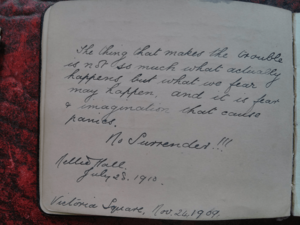 The thing that makes the trouble
is not so much what actually
happens, but what we fear
may happen, and it is fear
& imagination that cause
panics.
No Surrender!!!
Nellie Hall.
July 28. 1910.
Victoria Square, Nov. 22. 1909.